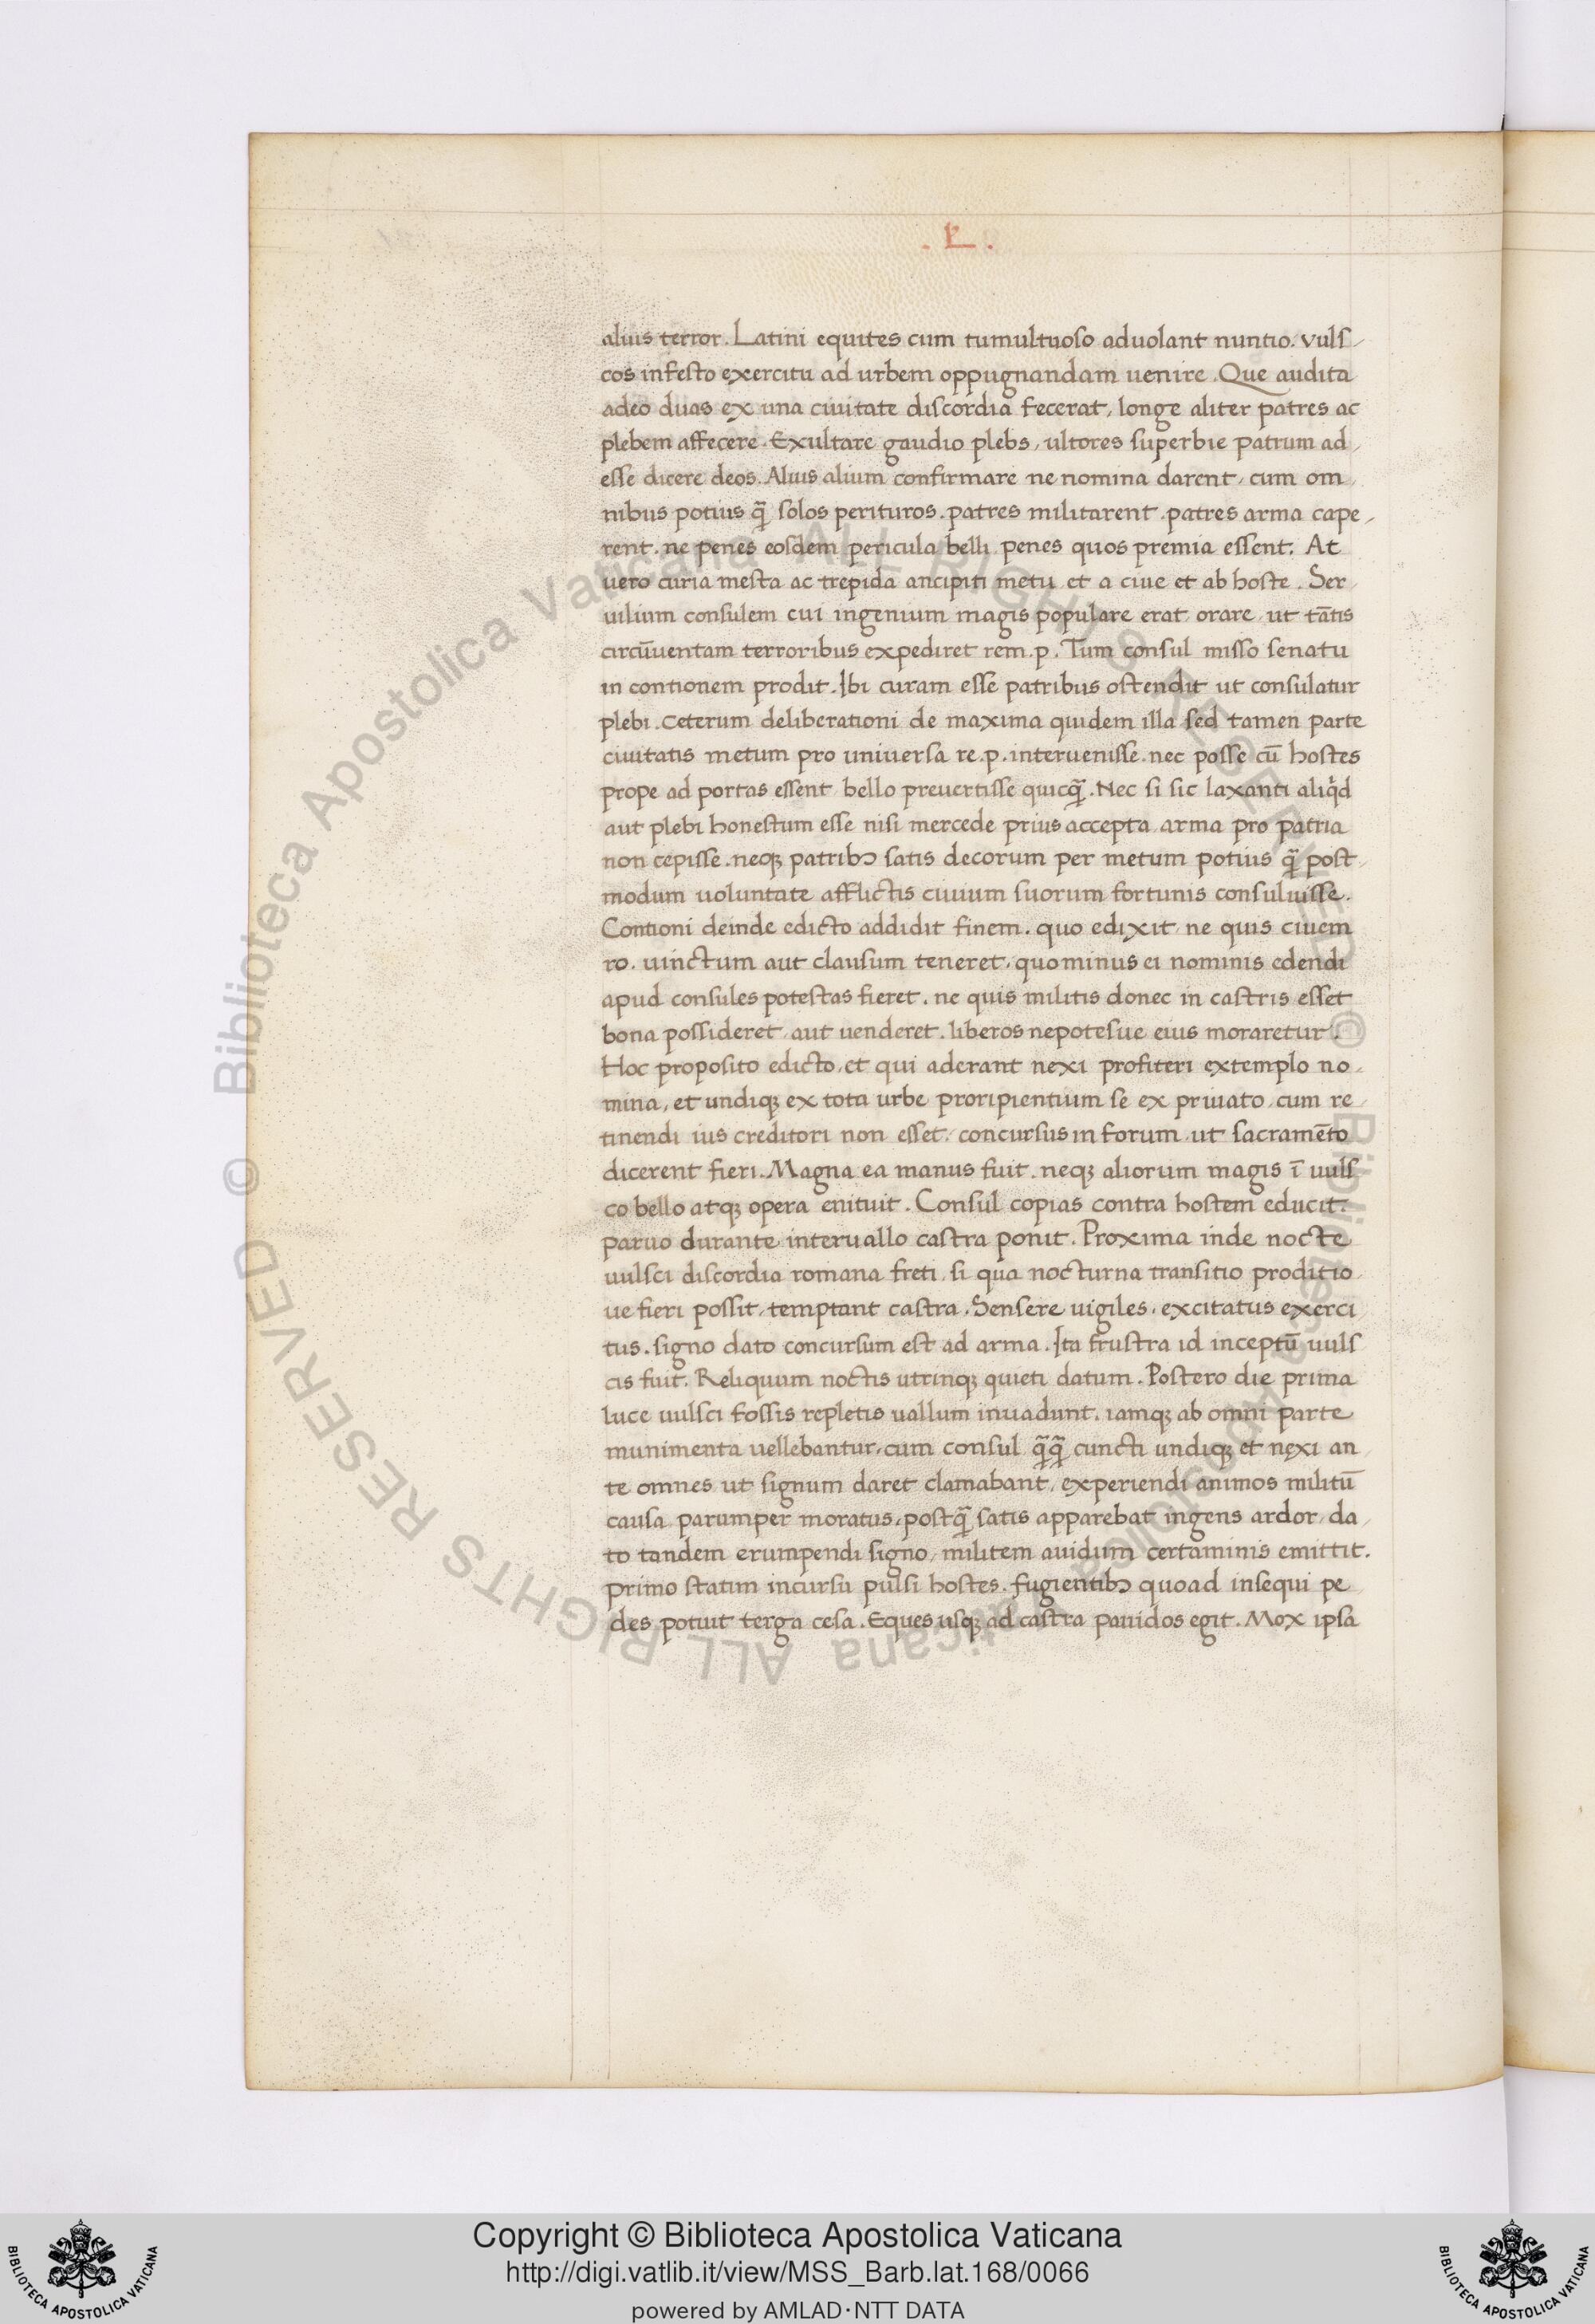 . L .
alius terror. Latini equites cum tumultuoso aduolant nuntio. vulſ-
cos infeſto exercitu ad urbem oppugnandam uenire. Que audita
adeo duas ex una ciuitate diſcordia fecerat, longe aliter patres ac
plebem affecere. Exultare gaudio plebs, ultores ſuperbie patrum ad-
eſſe dicere deos. Alius alium confirmare ne nomina darent, cum om-
nibus potius q̃ ſolos perituros. patres militarent. patres arma cape-
rent. ne penes eosdem pericula belli, penes quos premia eſſent. At
uero curia meſta ac trepida ancipiti metu et a ciue et ab hoſte. Ser-
uilium conſulem cui ingenium magis populare erat orare, ut tātis
circūuentam terroribus expediret rem.p. Tum conſul miſſo ſenatu
in contionem prodit. Ibi curam eſſe patribus oſtendit ut conſulatur
plebi. ceterum deliberationi de maxima quidem illa ſed tamen parte
ciuitatis metum pro univerſa re.p. interueniſſe. nec poſſe cū hoſtes
prope ad portas eſſent bello preuertiſſe quicq̃. Nec ſi ſic laxanti aliqd
aut plebi honeſtum eſſe niſi mercede prius accepta arma pro patria
non cepiſſe. neqꝫ patribꝯ ſatis decorum per metum potius q̃ poſt-
modum uoluntate afflictis ciuium ſuorum fortunis conſuluiſſe.
Contioni deinde edicto addidit finem. quo edixit ne quis ciuem
ro. uinctum aut clauſum teneret, quominus ei nominis edendi
apud conſules poteſtas fieret. ne quis militis donec in caſtris eſſet
bona poſſideret aut uenderet. liberos nepoteſue eius moraretur.
Hoc propoſito edicto, et qui aderant nexi profiteri extemplo no-
mina, et undiqꝫ ex tota urbe proripientium ſe ex priuato, cum re-
tinendi ius creditori non eſſet, concursus in forum ut ſacramēto
dicerent fieri. Magna ea manus fuit. neqꝫ aliorum magis ī uulſ-
co bello atqꝫ opera enituit. Conſul copias contra hoſtem educit.
paruo durante interuallo caſtra ponit. Proxima inde nocte
uulſci diſcordia romana freti, ſi qua nocturna tranſitio proditio
ue fieri poſſit, temptant caſtra. Senſere uigiles, excitatus exerci-
tus. ſigno dato concurſum eſt ad arma. Ita fruſtra id inceptū uulſ
cis fuit. Reliquum noctis utrinqꝫ quieti datum. Poſtero die prima
luce uulſci foſſis repletis uallum inuadunt. iamqꝫ ab omni parte
munimenta uellebantur, cum conſul q̃q̃ cuncti undiqꝫ et nęxi an-
te omnes ut ſignum daret clamabant, experiendi animos militū
cauſa parumper moratus, poſtq̃ ſatis apparebat ingens ardor, da-
to tandem erumpendi ſigno, militem auidum certaminis emittit.
primo ſtatim incurſu pulſi hoſtes. fugientibꝯ quoad inſequi pe-
des potuit terga ceſa. Eques uſqꝫ ad caſtra pauidos egit. Mox ipſa
© Biblioteca Apostolica Vaticana ALL RIGHTS RESERVED
© Biblioteca Apostolica Vaticana ALL RIGHTS RESERVED
Copyright © Biblioteca Apostolica Vaticana
http://digi.vatlib.it/view/MSS_Barb.lat.168/0066
powered by AMLAD·NTT DATA
BIBLIOTECA APOSTOLICA VATICANA
BIBLIOTECA APOSTOLICA VATICANA